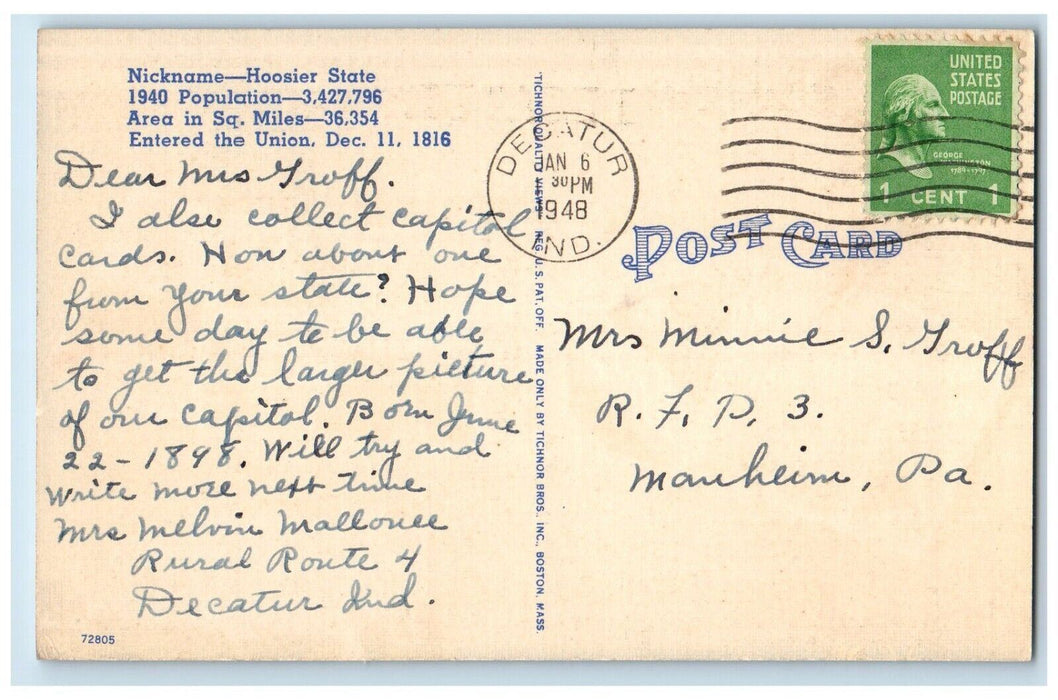 Nickname—Hoosier State
1940 Population—3,427,796
Area in Sq. Miles—36,354
Entered the Union, Dec. 11, 1816
Dear Mrs Groff.
I also collect capitol
cards. How about one
from your state? Hope
some day to be able
to get the larger picture
of our capitol. Born June
22-1898. Will try and
write more next time
Mrs Melvin Mallonee
Rural Route 4
Decatur Ind.
72805
TICHNOR QUALITY VIEWS REG. U.S. PAT. OFF. MADE ONLY BY TICHNOR BROS., INC., BOSTON, MASS.
DECATUR
JAN 6
30PM
1948
IND.
UNITED
STATES
POSTAGE
GEORGE
WASHINGTON
1789-1797
1 CENT 1
POST CARD
Mrs Minnie S. Groff
R. F. D. 3.
Manheim, Pa.